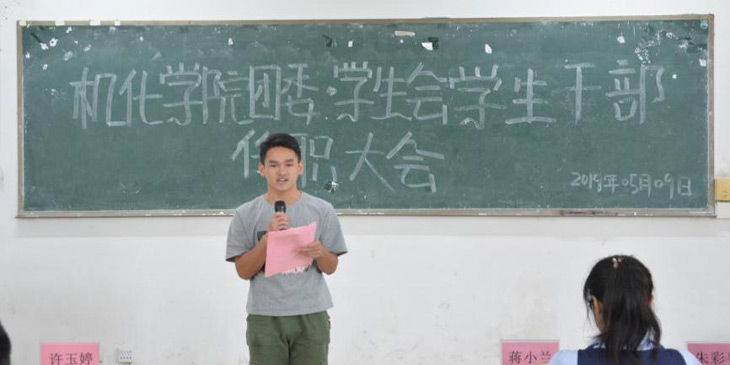 机化学院团委·学生会学生干部
任职大会
2019年05月09日
许玉婷
蒋小兰
朱彩